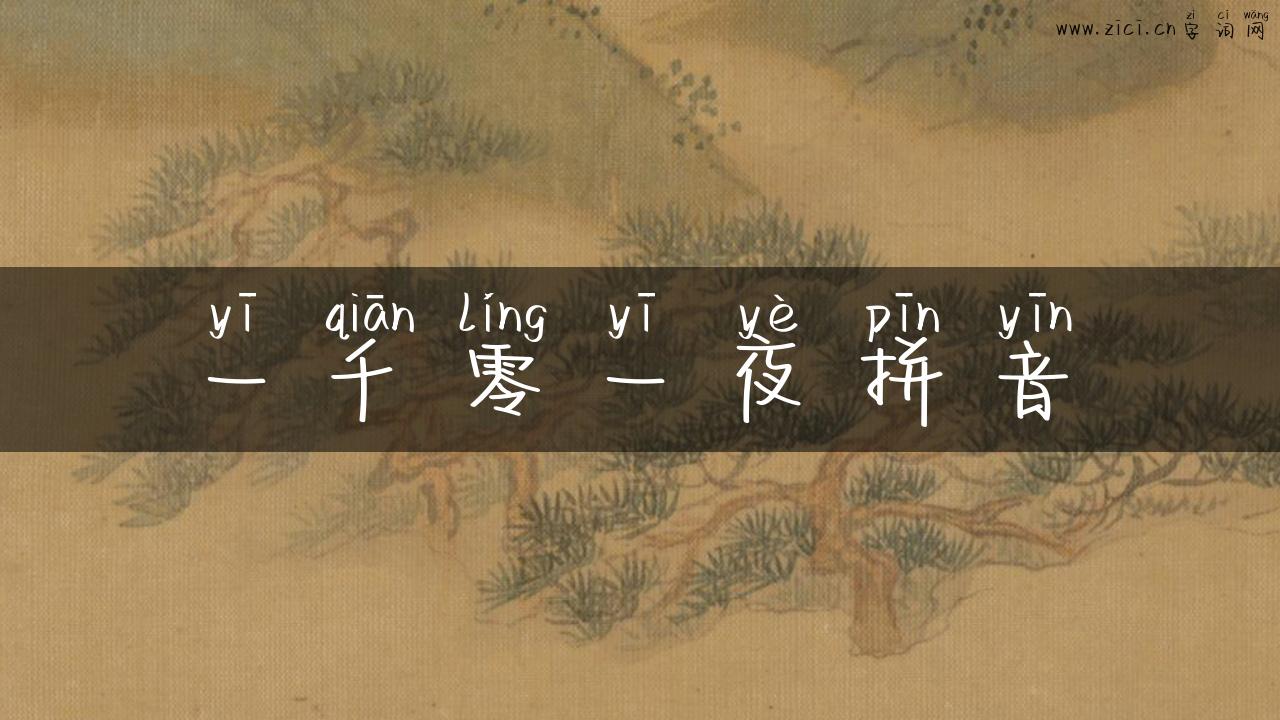 zì cí wǎng
www.zici.cn 字词网
yī qiān líng yī yè pīn yīn
一千零一夜拼音